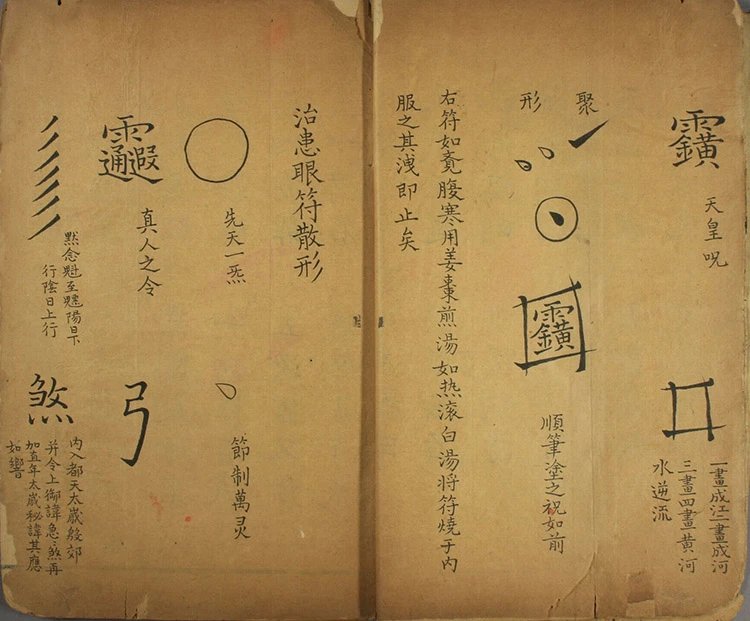 天皇呪
一畫成江二畫成河
三畫四畫黄河
水逆流
聚
形
順筆塗之祝如前
右符如賫腹寒用姜棗煎湯如热滚白湯将符燒于内
服之其洩即止矣
治患眼符散形
先天一炁
節制萬灵
真人之令
弓
黙念魁至魓陽日下
行陰日上行
煞
内入都天太歲殷郊
并令上御諱急煞再
加直年太歲秘諱其應
如響